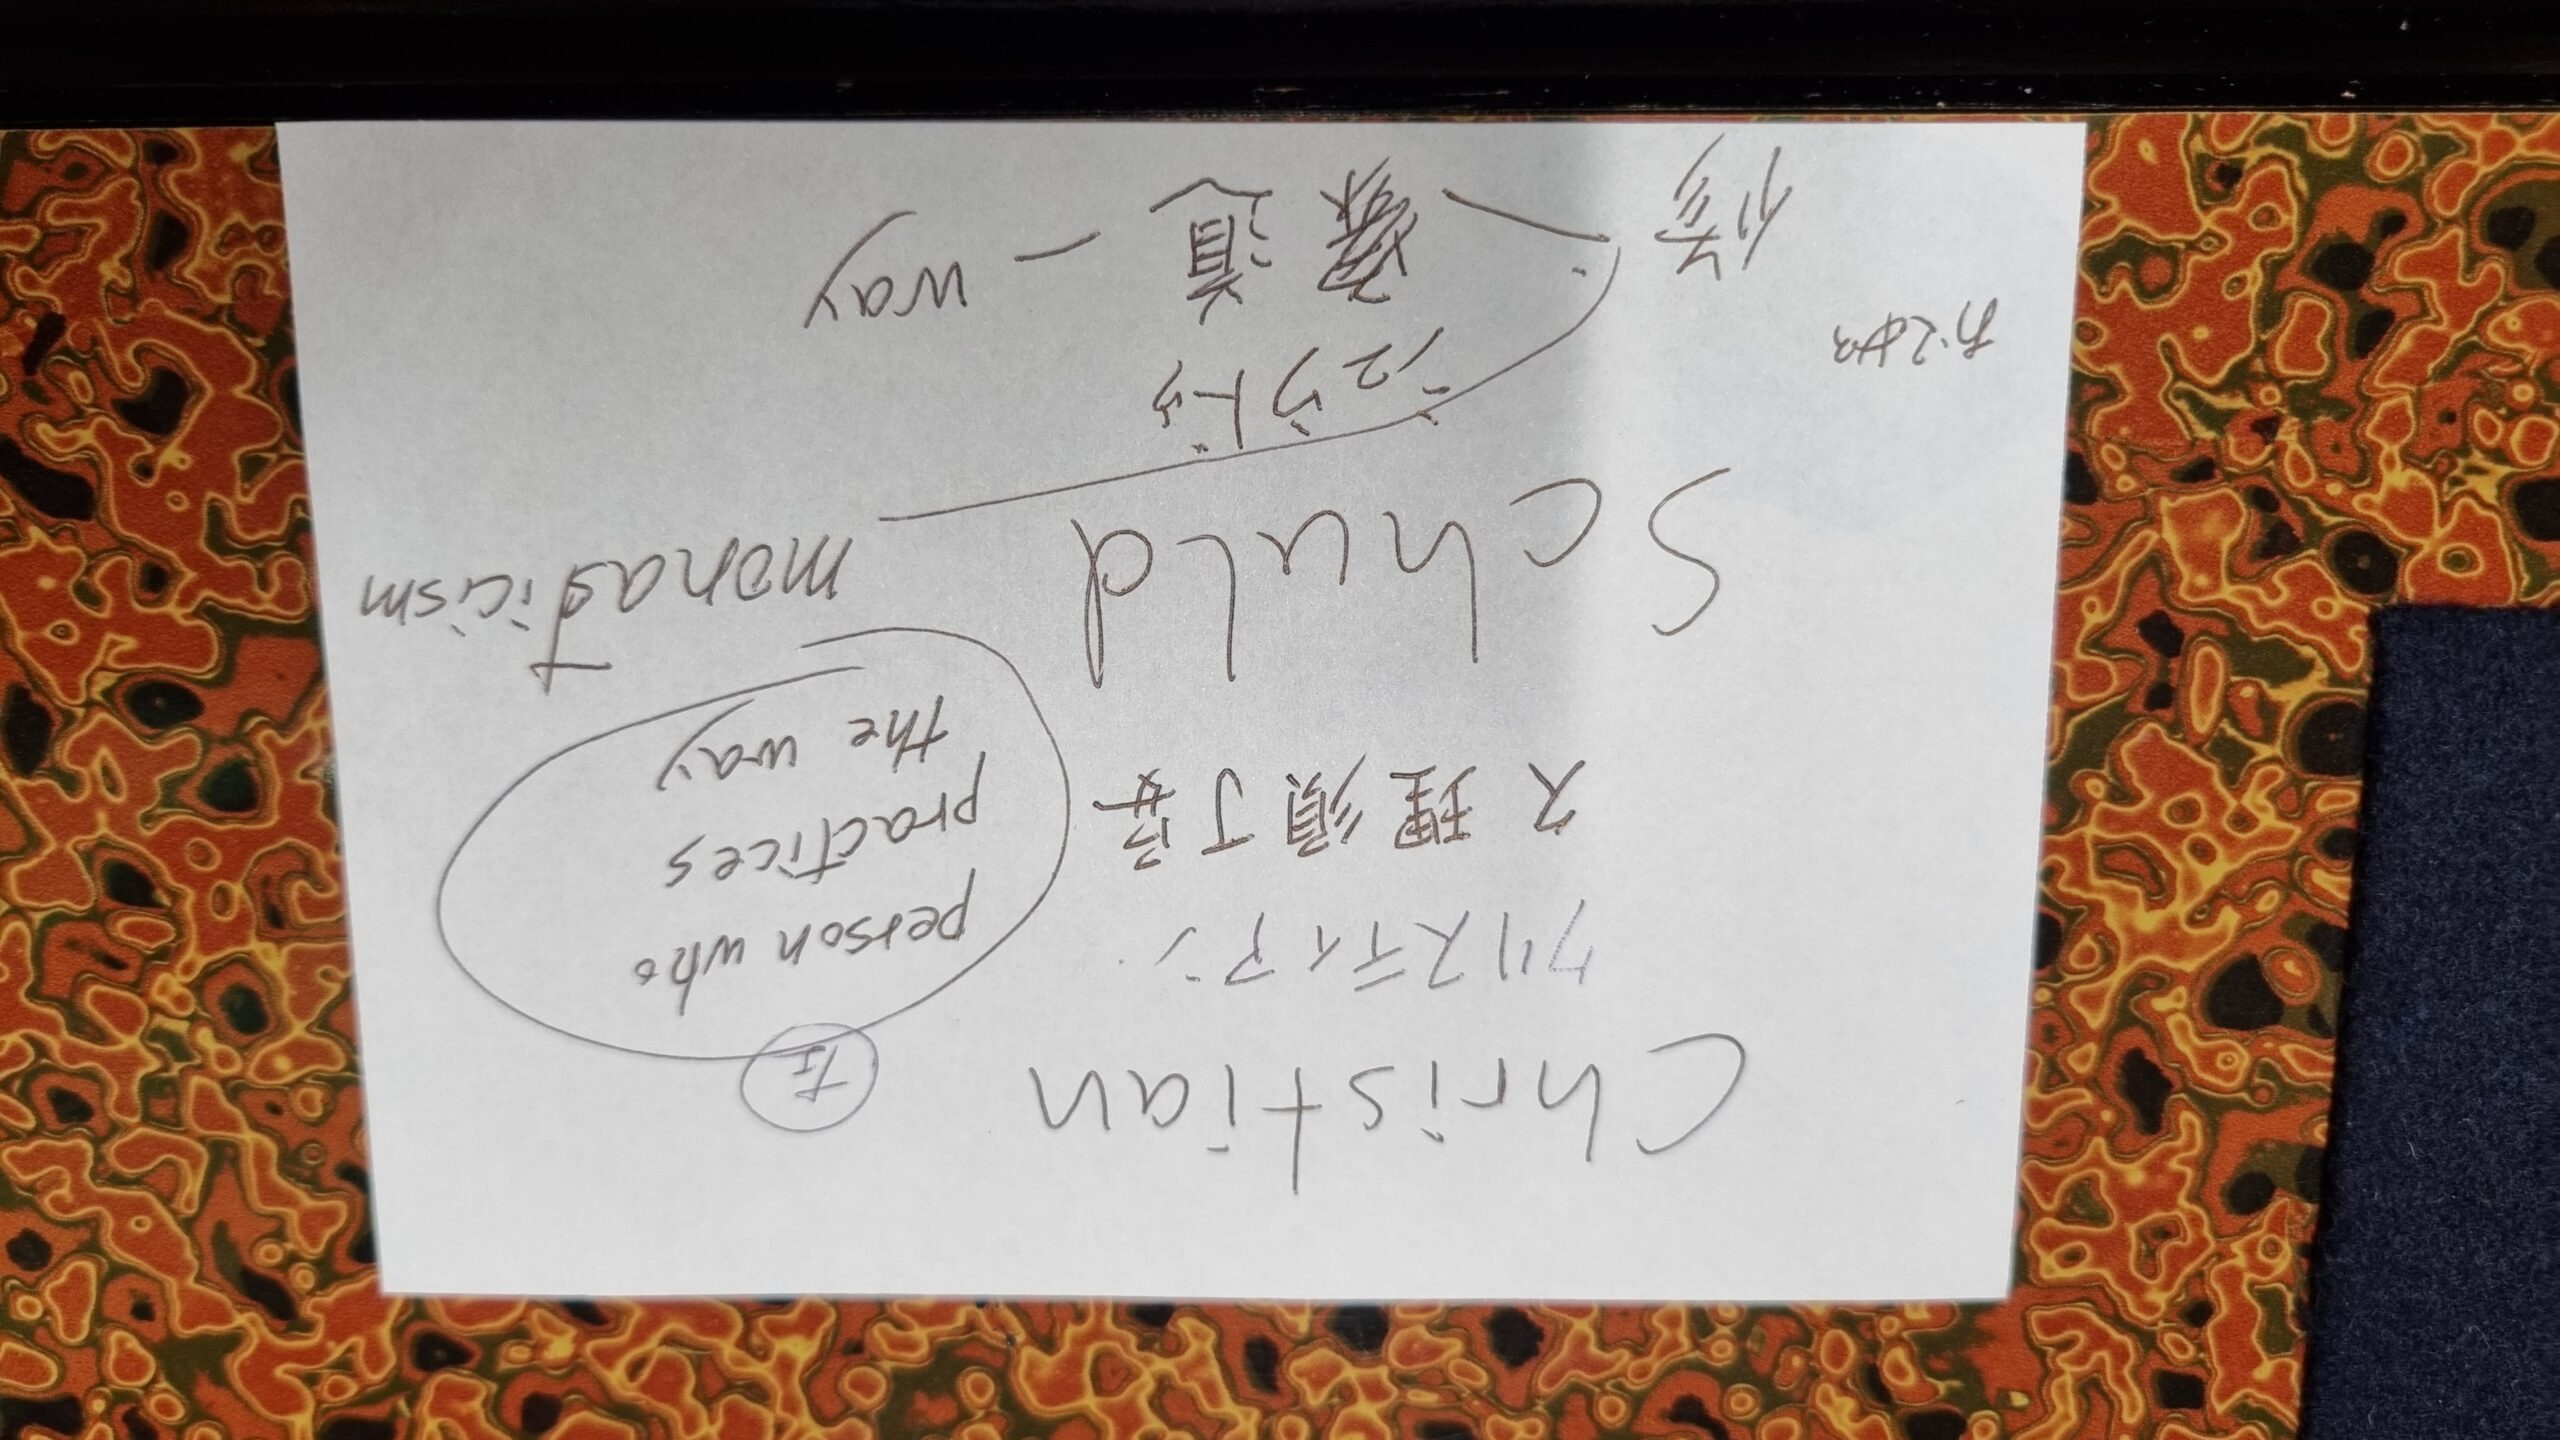 Christian
クリスティアン
久理須丁安
person who
practices
the way
Schuld
monasticism
シュウトゥ
修 道 - way